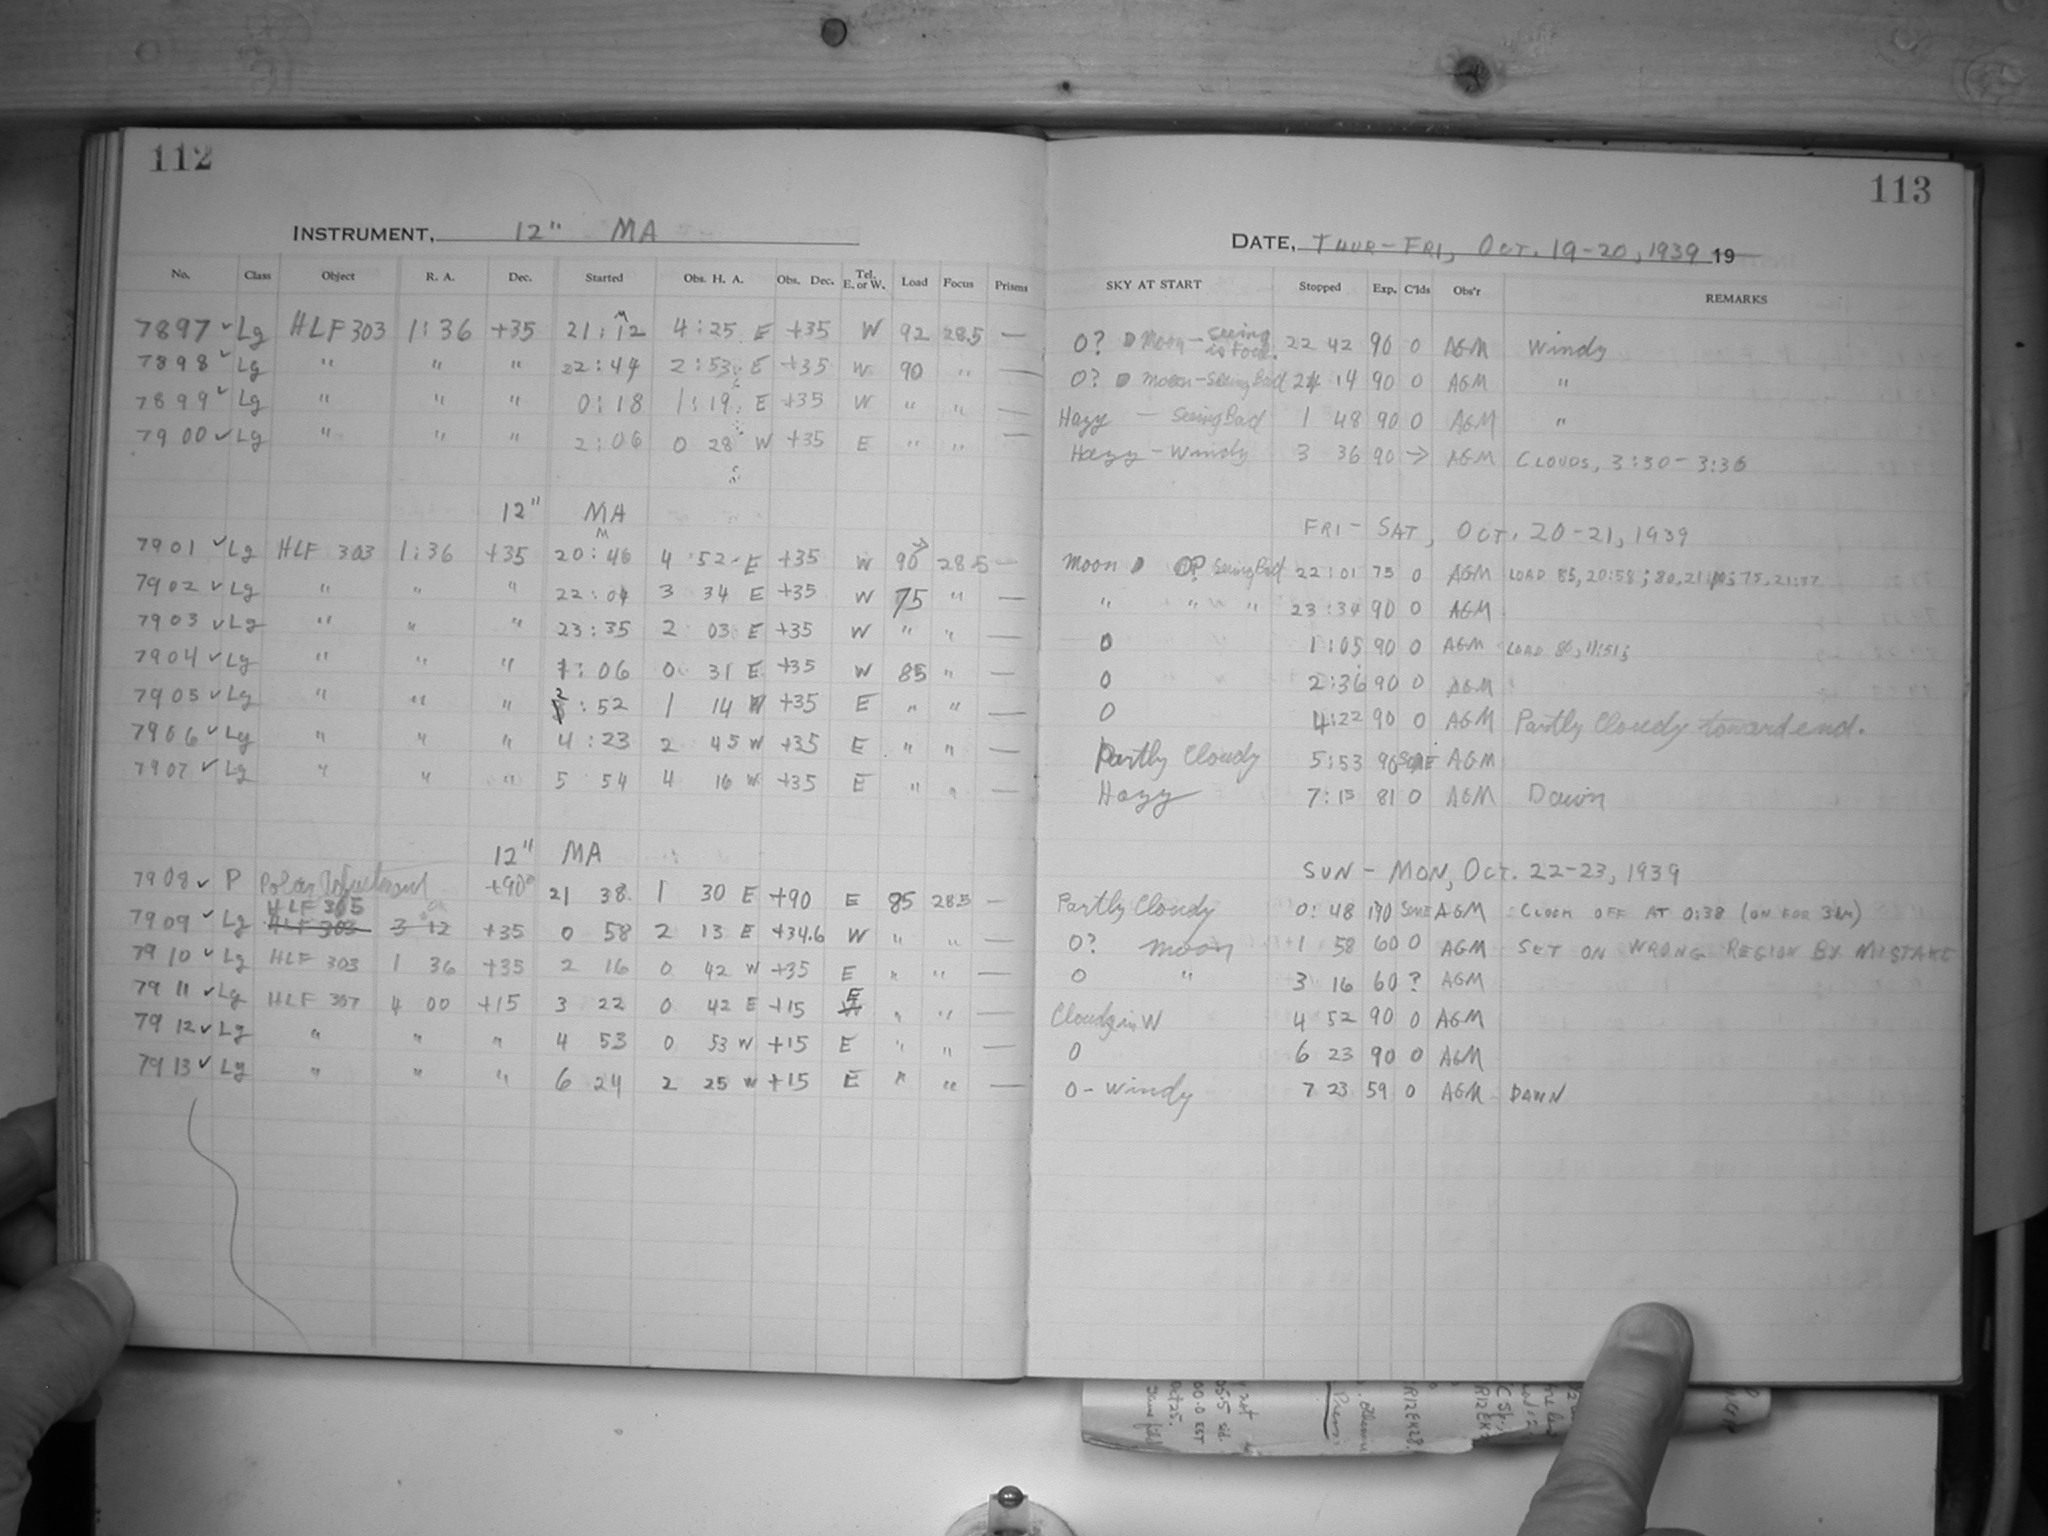 112
INSTRUMENT, 12" MA
No. Class Object R. A. Dec. Started Obs. H. A. Obs. Dec. Tel. E. or W. Load Focus Prisms
7897 ✓ Lg HLF 303 1:36 +35 21:12 4:25 E +35 W 92 28.5 —
7898 ✓ Lg " " " 22:44 2:53 E +35 W 90 " —
7899 ✓ Lg " " " 0:18 1:19 E +35 W " " —
7900 ✓ Lg " " " 2:06 0 28 W +35 E " " —
12" MA
7901 ✓ Lg HLF 303 1:36 +35 20:46 4 52 E +35 W 90 28.5 —
7902 ✓ Lg " " " 22:04 3 34 E +35 W 75 " —
7903 ✓ Lg " " " 23:35 2 03 E +35 W " " —
7904 ✓ Lg " " " 1:06 0 31 E +35 W 85 " —
7905 ✓ Lg " " " 2:52 1 14 W +35 E " " —
7906 ✓ Lg " " " 4:23 2 45 W +35 E " " —
7907 ✓ Lg " " " 5 54 4 16 W +35 E " " —
12" MA
7908 ✓ P Polar Adjustment +90° 21 38 1 30 E +90 E 85 28.5 —
HLF 305
7909 ✓ Lg HLF 303 3 12 +35 0 58 2 13 E +34.6 W " " —
7910 ✓ Lg HLF 303 1 36 +35 2 16 0 42 W +35 E " " —
7911 ✓ Lg HLF 307 4 00 +15 3 22 0 42 E +15 E " " —
7912 ✓ Lg " " " 4 53 0 53 W +15 E " " —
7913 ✓ Lg " " " 6 24 2 25 W +15 E " " —
113
DATE, THUR-FRI, OCT. 19-20, 1939 19
SKY AT START Stopped Exp. C'lds Obs'r REMARKS
0? Moon - seeing is Poor. 22 42 90 0 AGM Windy
0? Moon - Seeing Bad 24 14 90 0 AGM "
Hazy - Seeing Bad 1 48 90 0 AGM "
Hazy - Windy 3 36 90 → AGM CLOUDS, 3:30-3:36
FRI - SAT, OCT. 20-21, 1939
Moon 0? Seeing Bad 22:01 75 0 AGM LOAD 85, 20:58; 80, 21 75, 21:37
" " " 23:34 90 0 AGM
0 1:05 90 0 AGM LOAD 80,
0 2:36 90 0 AGM
0 4:22 90 0 AGM Partly Cloudy toward end.
Partly Cloudy 5:53 90 SOME AGM
Hazy 7:15 81 0 AGM Dawn
SUN - MON, OCT. 22-23, 1939
Partly Cloudy 0:48 190 SOME AGM CLOCK OFF AT 0:38 (ON FOR 3 hr)
0? moon 1 58 60 0 AGM SET ON WRONG REGION BY MISTAKE
0 " 3 16 60 ? AGM
Clouds in W 4 52 90 0 AGM
0 6 23 90 0 AGM
0 - Windy 7 23 59 0 AGM DAWN